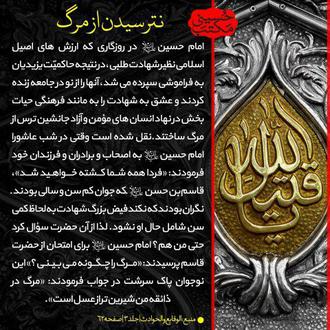 نترسیدن از مرگ
امام حسین در روزگاری که ارزش های اصیل
اسلامی نظیر شهادت طلبی ، در نتیجه حاکمیّت یزیدیان
به فراموشی سپرده می شد، آنها را از نو در جامعه زنده
کردند و عشق به شهادت را به مانند فرهنگی حیات
بخش در نهاد انسان های مؤمن و آزاد جانشین ترس از
مرگ ساختند. نقل شده است وقتی در شب عاشورا
امام حسین به اصحاب و برادران و فرزندان خود
فرمودند: «فردا همه شما کشته خواهید شد»،
قاسم بن حسن که جوان کم سن و سالی بودند.
نگران بودند که نکند فیض بزرگ شهادت به لحاظ کمی
سن شامل حال او نشود . لذا از آن حضرت سؤال کرد
حتی من هم؟ امام حسین برای امتحان از حضرت
قاسم پرسیدند: «مرگ را چگونه می بینی؟» این
نوجوان پاک سرشت در جواب فرمودند: «مرگ در
ذائقه من شیرین تر از عسل است».
منبع: الوقایع والحوادث|جلد۳|صفحه۶۲
حسینی
مکتب